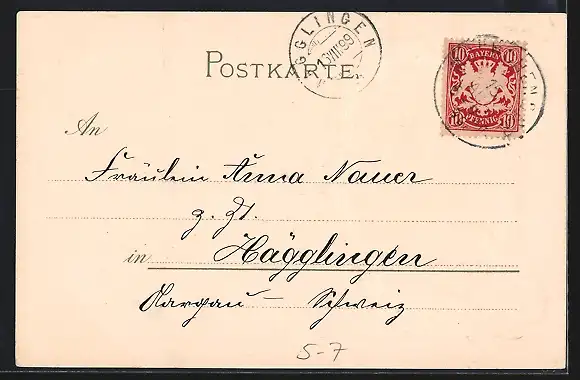 POSTKARTE
GGLINGEN
VIII 99
10 10
BAYERN
10 PFENNIG 10
An
Fräulein Anna Nauer
z. Zt.
in Hägglingen
Aargau — Schweiz
5-7